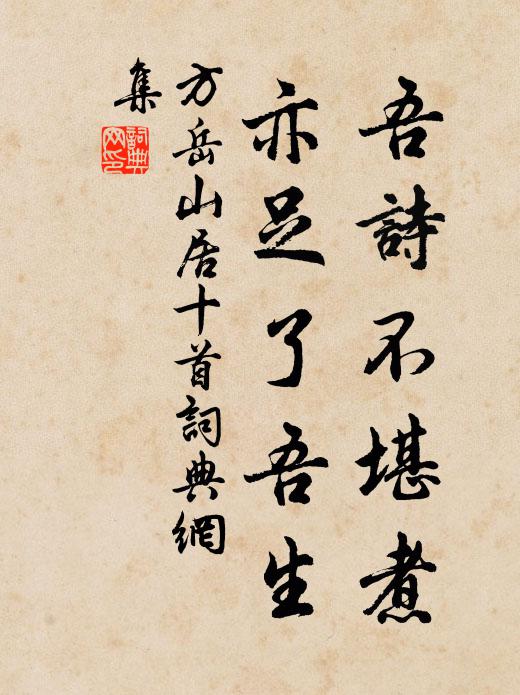 吾詩不堪煮
亦足了吾生
方岳山居十首詞典網
集
詞典网印